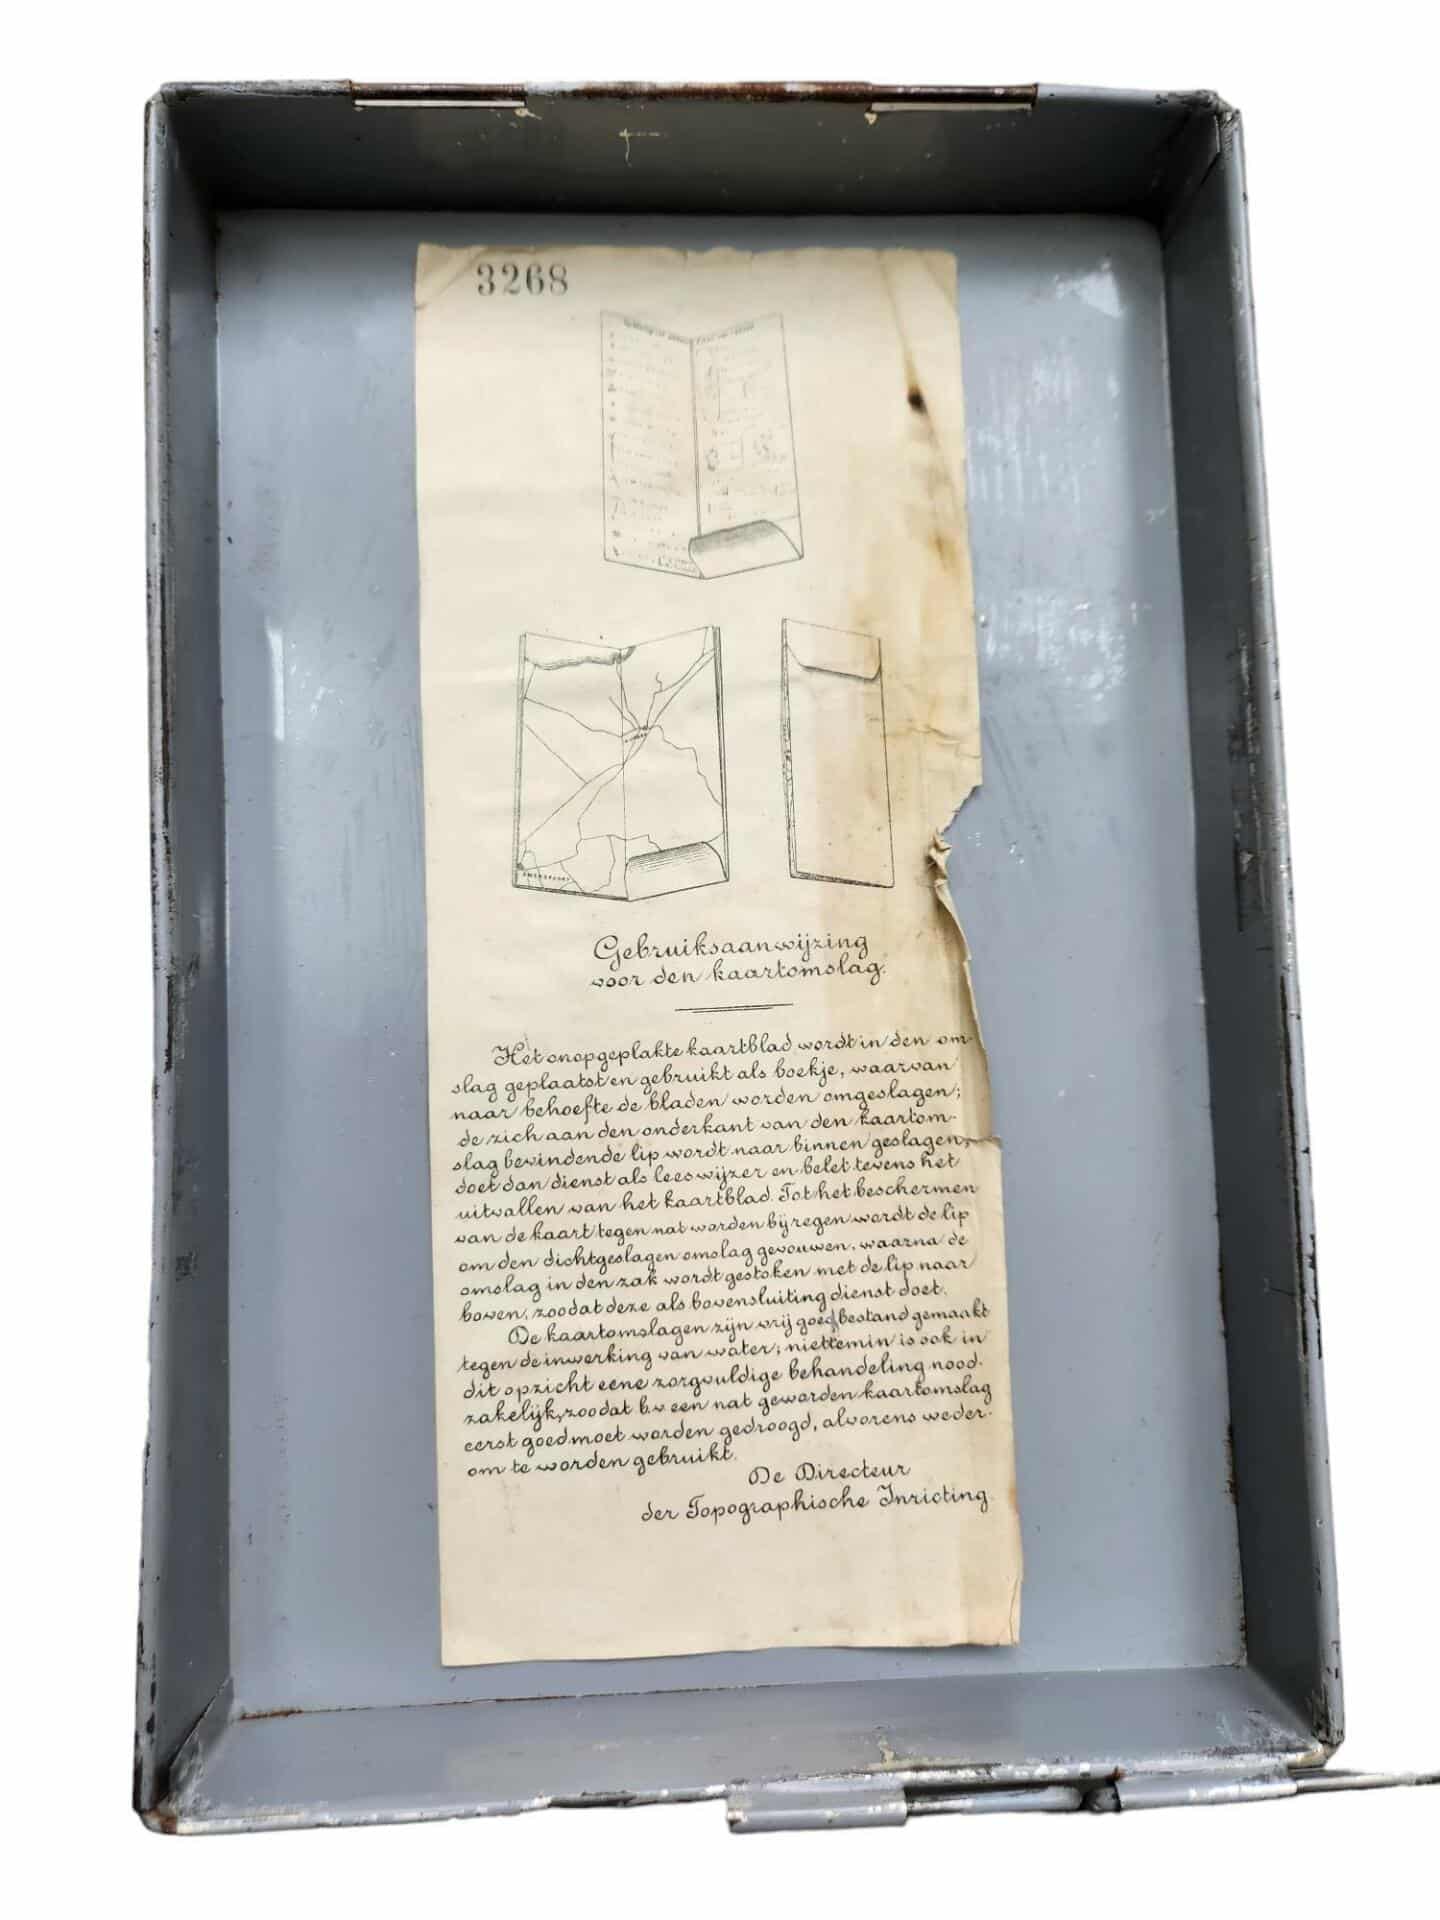 3268
AMERSFOORT
Gebruiksaanwijzing
voor den kaartomslag.
Het onopgeplakte kaartblad wordt in den om-
slag geplaatst en gebruikt als boekje, waarvan
naar behoefte de bladen worden omgeslagen;
de zich aan den onderkant van den kaartom-
slag bevindende lip wordt naar binnen geslagen,
doet dan dienst als leeswijzer en belet tevens het
uitvallen van het kaartblad. Tot het beschermen
van de kaart tegen nat worden bij regen wordt de lip
om den dichtgeslagen omslag gevouwen, waarna de
omslag in den zak wordt gestoken met de lip naar
boven, zoodat deze als bovensluiting dienst doet.
De kaartomslagen zijn vrij goed bestand gemaakt
tegen de inwerking van water; niettemin is ook in
dit opzicht eene zorgvuldige behandeling nood-
zakelijk, zoodat b.v een nat geworden kaartomslag
eerst goed moet worden gedroogd, alvorens weder-
om te worden gebruikt.
De Directeur
der Topographische Inricting.